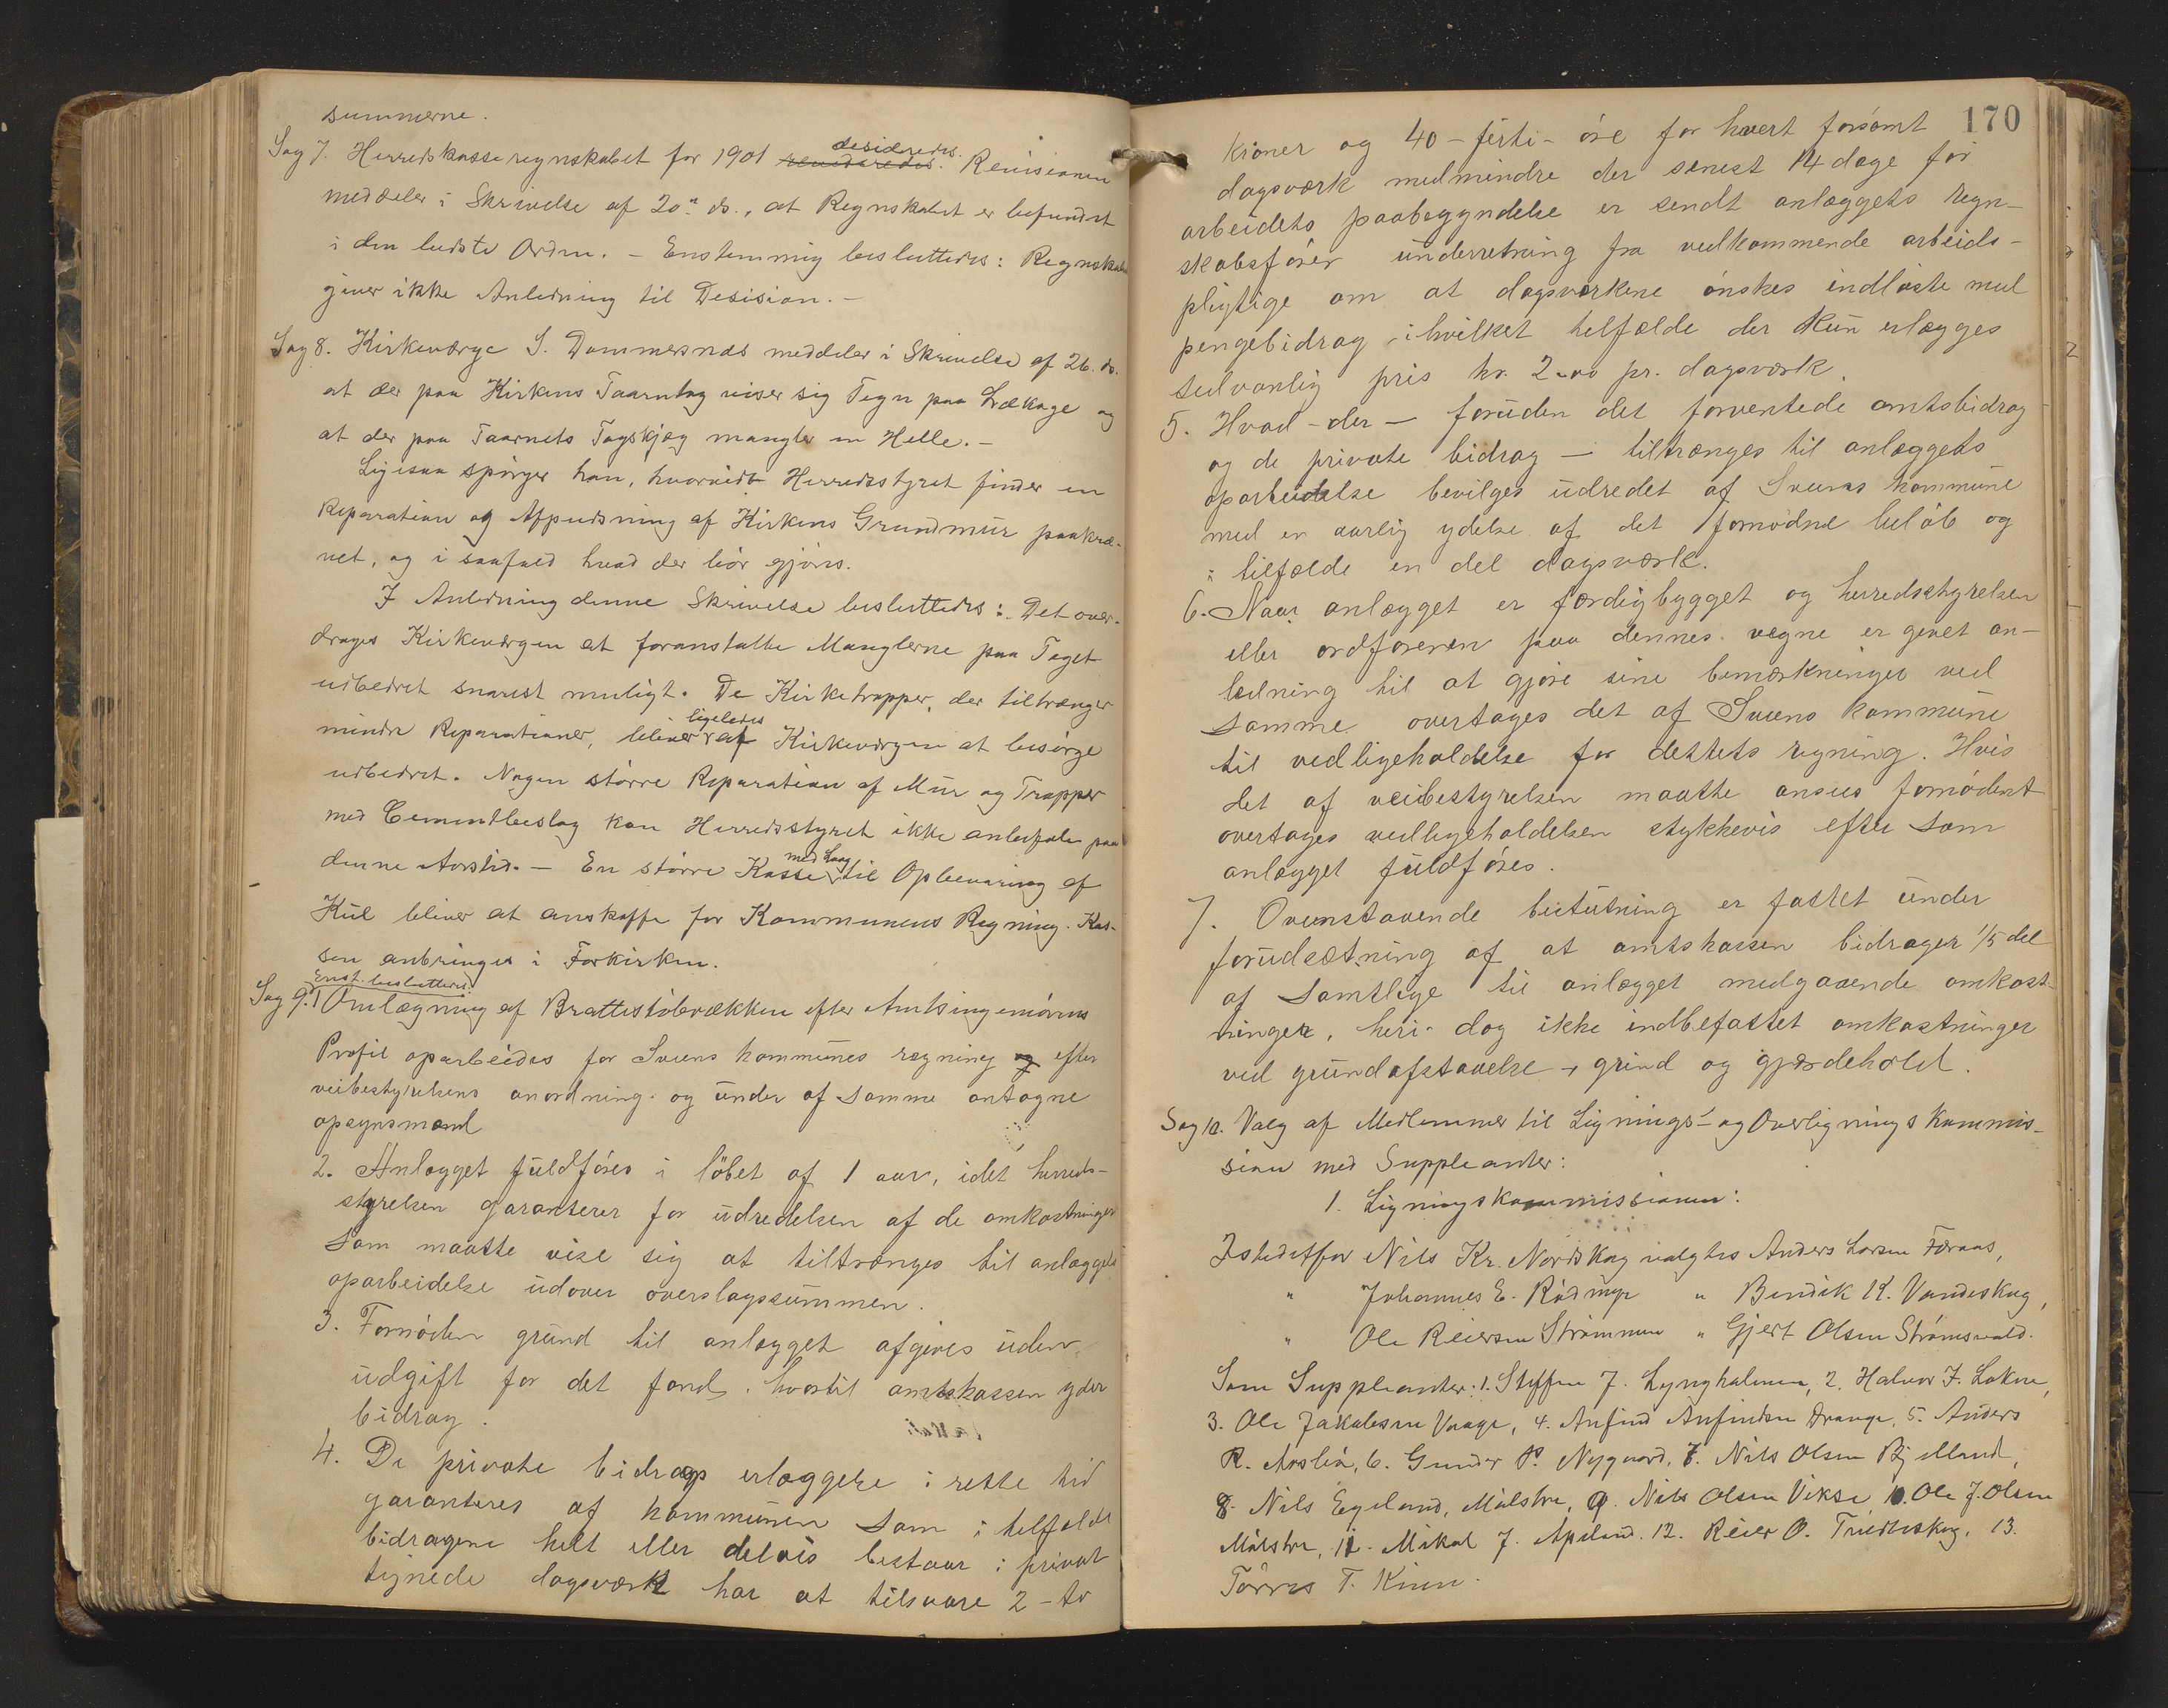 summerne.
Sag 7. Herredskasseregnskabet for 1901 revideredes. desideredes. Revisionen
meddeler i Skrivelse af 20de ds., at Regnskabet er befundet
i den bedste Orden. – Enstemmig besluttedes: Regnskabet
giver ikke Anledning til Desision. –
Sag 8. Kirkeværge S. Dommersnæs meddeler i Skrivelse af 26. ds.
at der paa Kirkens Taarntag viser sig Tegn paa Lækage og
at der paa Taarnets Tagskjæg mangler en Helle. –
Ligesaa spørger han, hvorvidt Herredsstyret finder en
Reparation og Afpudsning af Kirkens Grundmur paakræ-
vet, og i saafald hvad der bør gjøres.
I Anledning denne Skrivelse besluttedes: Det over-
drages Kirkeværgen at foranstalte Manglerne paa Taget
udbedret snarest muligt. De Kirketrapper, der tiltrænger
mindre Reparationer, bliver ligeledes af Kirkeværgen at besørge
udbedret. Nogen større Reparation af Mur og Trapper
med Cementbeslag kan Herredsstyret ikke anbefale paa
denne Aarstid. – En større Kasse med Laag til Opbevaring af
Kul bliver at anskaffe for Kommunens Regning. Kas-
sen anbringes i Forkirken.
Enst. besluttedes:
Sag 9. 1 Omlægning af Brattestøbrækken efter Amtsingeniørens
Profil oparbeides for Sveens kommunes regning og efter
veibestyrelsens anordning og under af samme antagne
opsynsmænd
2. Anlægget fuldføres i løbet af 1 aar, idet herreds-
styrelsen garanterer for udredelsen af de omkostninger
som maatte vise sig at tiltrænges til anlæggets
oparbeidelse udover overslagssummen.
3. Fornøden grund til anlægget afgives uden
udgift for det fond, hvortil amtskassen yder
bidrag.
4. De private bidrags erlæggelse i rette tid
garanteres af kommunen som i tilfælde
bidragene helt eller delvis bestaar i privat
tegnede dagsværk har at tilsvare 2 – to
170
kroner og 40 – førti – øre for hvert forsømt
dagsværk medmindre der senest 14 dage før
arbeidets paabegyndelse er sendt anlæggets regn-
skabsfører underretning fra vedkommende arbeids-
pligtige om at dagsværkene ønskes indløste med
pengebidrag i hvilket tilfælde der kun erlægges
sedvanlig pris kr. 2.00 pr. dagsværk.
5. Hvad – der – foruden det forventede amtsbidrag
og de private bidrag – tiltrænges til anlæggets
oparbeidelse bevilges udredet af Sveens kommune
med en aarlig ydelse af det fornødne beløb og
i tilfælde en del dagsværk.
6. Naar anlægget er færdigbygget og herredsstyrelsen
eller ordføreren paa dennes vegne er gevet an-
ledning til at gjøre sine bemærkninger ved
samme overtages det af Sveens kommune
til vedligeholdelse for dettets regning. Hvis
det af veibestyrelsen maatte ansees fornødent
overtages vedligeholdelsen stykkevis efter som
anlægget fuldføres.
7. Ovenstaaende beslutning er fattet under
forudsætning af at amtskassen bidrager 1/5 del
af samtlige til anlægget medgaaende omkost-
ninger, heri dog ikke indbefattet omkostninger
ved grundafstaaelse, grind og gjærdehold.
Sag 10. Valg af Medlemmer til Lignings- og Overligningskommis-
sion med Suppleanter:
1. Ligningskommissionen:
Istedetfor Nils Kr. Nordskog valgtes Anders Larsen Færaas,
" Johannes E. Rødmyr " Bendik K. Vandeskog,
" Ole Reiersen Strømmen " Gjert Olsen Strømsvold.
Som Suppleanter: 1. Steffen J. Lyngholmen, 2. Halvor J. Lokne,
3. Ole Jakobsen Vaage, 4. Anfind Anfindsen Drange, 5. Anders
R. Aaslid, 6. Gunder P. Nygaard, 7. Nils Olsen Bjelland,
8. Nils Egeland, Mølstre, 9. Nils Olsen Vikse 10. Ole J. Olsen
Mølstre, 11. Mikal J. Apeland. 12. Reier O. Tveiteskog. 13.
Tørres T. Kinn.